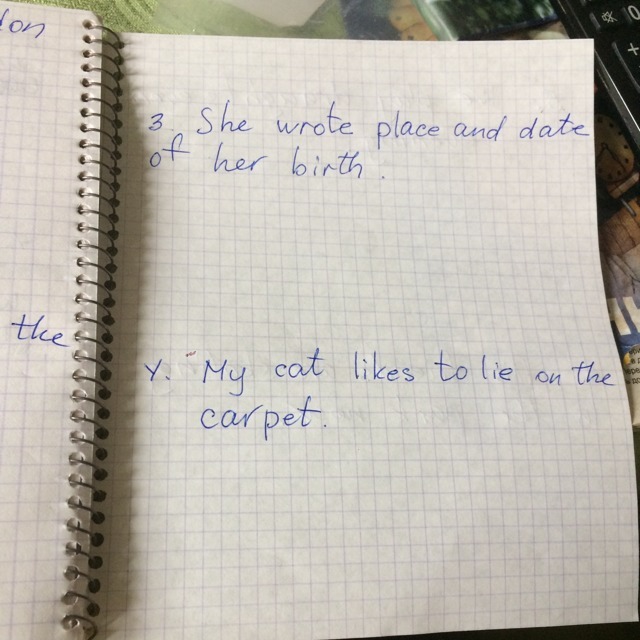 don
3. She wrote place and date
of her birth.
the
Y. "My cat likes to lie on the
carpet.